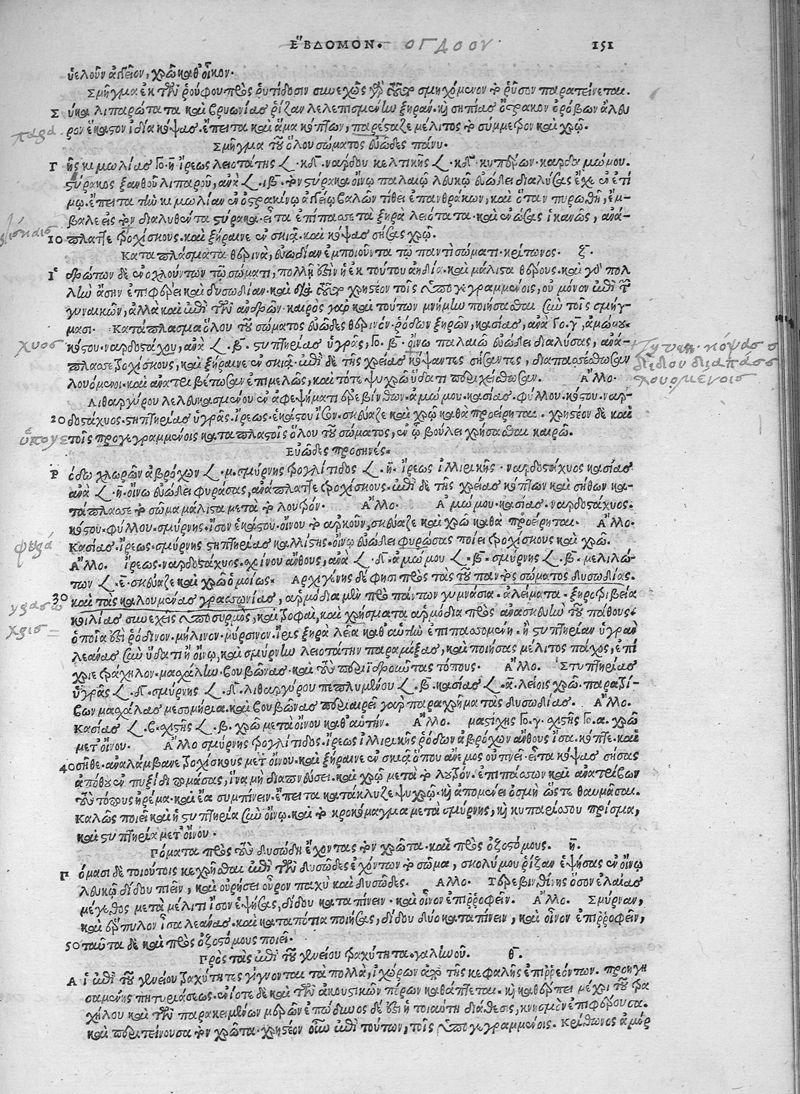 ἕβδομον. ΟΓΔΟΟΥ 151
ὑελοῦν ἀγγεῖον, χρῶ καθ' οἶκον.
Σμῆγμα ἐκ τῶν ῥούφου πρὸς ῥυτίδωσιν συνεχῶς γὰρ σμηχόμενον τὸ ῥύσον παρατείνεται.
Σύκα λιπαρώτατα καὶ βρυωνίας ῥίζαν λελεπισμένην ξηρὰν, καὶ σηπίας ὄστρακον ὀρόβων ἄλευ-
ρον ἕκαστον ἰδία κόψας. ἔπειτα καὶ ἅμα κόπτων, παρέσταζε μέλιτος τὸ σύμμετρον καὶ χρῶ.
Σμῆγμα τοῦ ὅλου σώματος εὐῶδες πάνυ.
Γῆς κιμωλίας γο. η ἴρεως λειοτάτης 𐅻. κδ. νάρδου κελτικῆς 𐅻. κδ. κυπέρων. καρδαμώμου.
στύρακος ξανθοῦ λιπαροῦ, ἀνὰ 𐅻. ιβ. τὸν στύρακα οἴνῳ παλαιῷ λευκῷ εὐώδει διαλύσας ἔχε ἐν ἑτοί-
μῳ. ἔπειτα τὴν κιμωλίαν ἐν ὀστρακίνῳ ἀγγείῳ βαλὼν τίθει ἐπ' ἀνθράκων, καὶ ὅταν πυρωθῇ, ἔμ-
βαλε εἰς τὸν διαλυθέντα στύρακα. εἶτα ἐπίπασσε τὰ ξηρὰ λειότατα. καὶ ἑνώσας ἱκανῶς, ἀνά-
10 πλαττε τροχίσκους. καὶ ξήραινε ἐν σκιᾷ. καὶ κόψας σήσας χρῶ.
Καταπλάσματα θερινὰ, εὐωδίαν ἐμποιοῦντα τῷ παντὶ σώματι. κρίτωνος. ζ.
Ἱδρώτων δὲ ἐνοχλούντων τῷ σώματι, πολλή ἐστιν ἡ ἐκ τούτου ἀηδία. καὶ μάλιστα θέρους. καὶ γὰρ πολ-
λὴν ἄσην ἐπιφέρει καὶ δυσωδίαν. καὶ διὰ τοῦτο χρηστέον τοῖς ὑπογεγραμμένοις, οὐ μόνον ἐπὶ τῶν
γυναικῶν, ἀλλὰ καὶ ἐπὶ τῶν ἀνδρῶν. καιρὸς γὰρ καὶ τούτων μνήμην ποιήσασθαι σὺν τοῖς σμήγ-
μασι. Κατάπλασμα ὅλου τοῦ σώματος εὐῶδες θερινόν. ῥόδων ξηρῶν, κασίας, ἀνὰ γο. γ. ἀμώμου.
κόστου. ναρδοστάχυος, ἀνὰ 𐅻. β. στυπτηρίας ὑγρᾶς, γο. β. οἴνῳ παλαιῷ εὐώδει διαλύσας, ἀνά-
πλασσε τροχίσκους, καὶ ξήραινε ἐν σκιᾷ. ἐπὶ δὲ τῆς χρείας κόψαντες σήσαντες, διαπασσέσθωσαν
λουόμενοι. καὶ ἀνατριβέτωσαν ἐπιμελῶς, καὶ τότε ψυχρῷ ὕδατι περιχείσθωσαν. Ἄλλο.
Λιθαργύρου λελευκασμένου ἐν ἀφεψήματι ἐρεβίνθων. ἀμώμου. κασίας. φύλλου. κόστου. ναρ-
20 δοστάχυος. στυπτηρίας ὑγρᾶς. ἴρεως. ἑκάστου ἴσον. σκεύαζε καὶ χρῶ καθὰ προείρηται. χρηστέον δὲ καὶ
τοῖς προγεγραμμένοις καταπλαστοῖς ὅλου τοῦ σώματος, ἐν ᾧ βούλει χρῆσασθαι καιρῷ.
Εὐῶδες προσηνές.
Ῥόδων χλωρῶν ἀβρόχων 𐅻. μ. σμύρνης τρωγλίτιδος 𐅻. η. ἴρεως ἰλλυρικῆς. ναρδοστάχυος κασίας
ἀνὰ 𐅻. η. οἴνῳ εὐώδει φυράσας, ἀνάπλαττε τροχίσκους. ἐπὶ δὲ τῆς χρείας κόπτων καὶ σήθων κα-
τάπλασσε τὸ σῶμα μάλιστα μετὰ τὸ λουτρόν. Ἄλλο. Ἀμώμου. κασίας. ναρδοστάχυος.
κόστου. φύλλου. σμύρνης. ἴσον ἑκάστου. οἴνου τὸ ἀρκοῦν, σκεύαζε καὶ χρῶ καθὰ προείρηται. Ἄλλο.
Κασίας. ἴρεως. σμύρνης στυπτηρίας καλλίστης. οἴνῳ εὐώδει φυρώσας ποίει τροχίσκους καὶ χρῶ.
Ἄλλο. Ἴρεως. ναρδοστάχυος. σχοίνου ἄνθους, ἀνὰ 𐅻. δ. ἀμώμου 𐅻. β. σμύρνης 𐅻. β. μελιλώ-
των 𐅻. ε. σκεύαζε καὶ χρῶ ὁμοίως. Ἀρχιγένης δέ φησι πρὸς τὰς τοῦ παντὸς σώματος δυσωδίας.
30 καὶ τὰς καλουμένας γρασωνίας, ἁρμόδια μὲν πρὸ πάντων γυμνάσια. ἀλείματα. ξηροτριβεία
κοιλίας συνεχεῖς ὑποσυρμοὺς, καὶ τροφαὶ, καὶ χρήσματα ἁρμόδια πρὸς ἀνασκευὴν τοῦ πάθους.
ὁποῖά ἐστι ῥόδινον. μήλινον. μύρσινον. ἴρις ξηρὰ λεία καθ' αὑτὴν ἐπιπασσομένη. ἢ στυπτηρίαν ὑγρὰν
λεάνας σὺν ὕδατι ἢ οἴνῳ, καὶ σμύρνην λειοτάτην παραμίξας, καὶ ποιήσας μέλιτος πάχος, ἐπί-
χριε τράχηλον. μασχάλην. βουβῶνας. καὶ τοὺς περιιδροῦντας τόπους. Ἄλλο. Στυπτηρίας
ὑγρᾶς 𐅻. δ. σμύρνης 𐅻. δ. λιθαργύρου πεπλυμένου 𐅻. β. κασίας 𐅻. α. λείοις χρῶ. παρατρί-
βων μασχάλας μεσομήρια. καὶ βουβῶνας. περιαιρεῖ γὰρ παραχρῆμα τὰς δυσωδίας. Ἄλλο.
Κασίας 𐅻. ϛ. σχιστῆς 𐅻. β. χρῶ μετὰ οἴνου καθ' αὑτήν. Ἄλλο. μαστίχης γο. γ. σχιστῆς γο. α. χρῶ
μετ' οἴνου. Ἄλλο σμύρνης τρωγλίτιδος. ἴρεως ἰλλυρικῆς ῥόδων ἀβρόχων ἄνθους ἴσα. κόπτε. καὶ
40 σῆθε. ἀναλάμβανε τροχίσκους μετ' οἴνου. καὶ ξήραινε ἐν σκιᾷ ὅπου ἄνεμος οὐ πνεῖ. εἶτα κόψας σήσας
ἀπόθου ἐν πυξίδι πωμάσας, ἵνα μὴ διαπνεύσει. καὶ χρῶ μετὰ τὸ λουτρόν. ἐπιπάσσων καὶ ἀνατρίβων
τοὺς τόπους ἠρέμα. καὶ ἔα συμπίνειν. ἔπειτα κατάκλυζε ψυχρῷ. καὶ ἀπομένει ὀσμὴ ὥστε θαυμάσαι.
Καλῶς ποιεῖ καὶ ἡ στυπτηρία σὺν οἴνῳ. καὶ τὸ κροκόμαγμα μετὰ σμύρνης, καὶ κυπαρίσσου πρίσμα,
καὶ στυπτηρία μετ' οἴνου.
Πόματα πρὸς τοὺς δυσώδη ἔχοντας τὸν χρῶτα. καὶ πρὸς ὀζοστόμους. η.
Πόμασι δὲ τοιούτοις κεχρῆσθαι ἐπὶ τῶν δυσῶδες ἐχόντων τὸ σῶμα, σκολύμου ῥίζαν ἑψήσας ἐν οἴνῳ
λευκῷ δίδου πιεῖν, καὶ οὐρήσει οὖρον παχὺ καὶ δυσῶδες. Ἄλλο. Τερεβινθίνης ὅσον ἐλαίας
μέγεθος μετὰ μέλιτι ἴσον ἑψήσας, δίδου καταπίνειν. καὶ οἶνον ἐπιρροφεῖν. Ἄλλο. Σμύρναν,
καὶ ἕρπυλον ἴσα λεάνας. καὶ καταπότια ποιήσας, δίδου δύο καταπίνειν, καὶ οἶνον ἐπιρροφεῖν,
50 ταῦτα δὲ καὶ πρὸς ὀζοστόμους ποιεῖ.
Πρὸς τὰς ἐπὶ τοῦ γενείου τραχύτητας. γαληνοῦ. θ.
Αἱ ἐπὶ τοῦ γενείου τραχύτητες γίγνονται τὰ πολλὰ, ἰχώρων ἀπὸ τῆς κεφαλῆς ἐπιρρεόντων. προηγη
σαμένης πιτυριάσεως. ἐνίοτε δὲ καὶ τῶν ἀκουστικῶν πόρων καθάπτεται. καὶ καθέρπει μέχρι τοῦ τρα-
χήλου καὶ τῶν παρακειμένων μερῶν ἐπώδυνος δέ ἐστι ἡ τοιαύτη διάθεσις, κνησμὸν ἐπιφέρουσα.
καὶ περιτείνουσα τὸν χρῶτα. χρηστέον οὖν ἐπὶ τούτων, τοῖς ὑπογεγραμμένοις. Κρίτωνος ἀμόρ
παρα
χυος
κόψας
δίδου διαπάσσ
λουομένοις